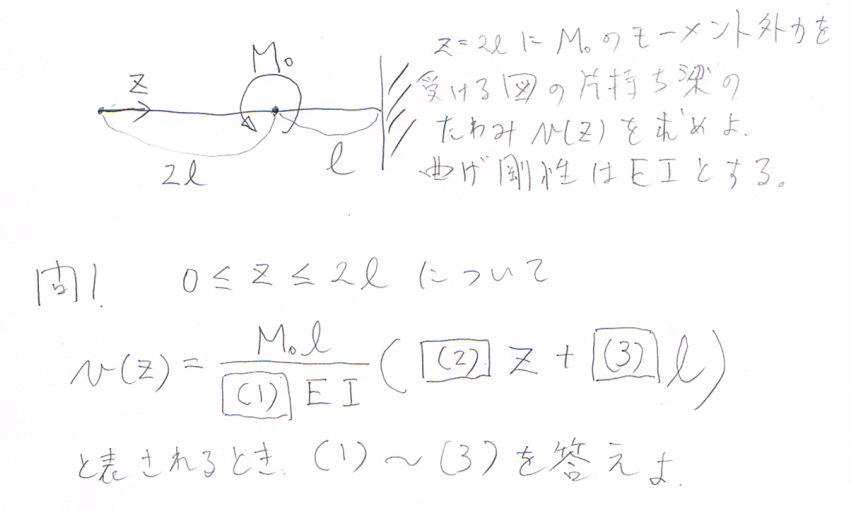 z=2lにM₀のモーメント外力を
受ける図の片持ち梁の
たわみv(z)を求めよ.
曲げ剛性はEIとする。
M₀
z
2l
l
問1. 0≤z≤2lについて
v(z) = M₀l / [(1)] EI ( [(2)] z + [(3)] l )
と表されるとき. (1)~(3)を答えよ.